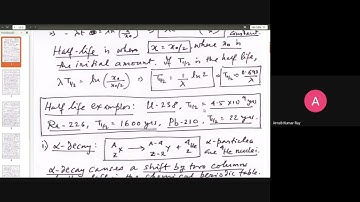 ⇒ -λt = ln(x/x₀) constant.
Half-life is when x = x₀/2 where x₀ is
the initial amount. If T₁/₂ is the half life,
λT₁/₂ = ln(x₀/(x₀/2)) ⇒ T₁/₂ = 1/λ ln2 = 0.693/λ
Half life examples: U-238, T₁/₂ = 4.5 × 10⁹ yrs
Ra-226, T₁/₂ = 1600 yrs, Pb-210, T₁/₂ = 22 yrs.
1) α-decay: ᴬ_Z X → ᴬ⁻⁴_Z₋₂ Y + ⁴₂He α-particles are He nuclei.
α-decay causes a shift by two columns
in the chemical periodic table.
A
Arnab Kumar Ray